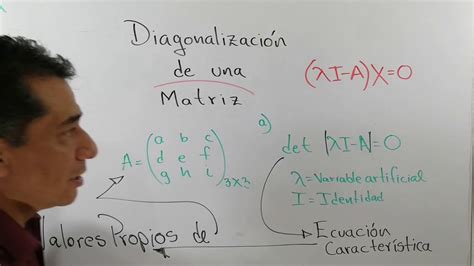 Diagonalización
de una
Matriz
(λI-A)X=0
a)
A = (a b c
d e f
g h i)3x3
det |λI-A|=0
λ = Variable artificial
I = Identidad
Valores Propios de
Ecuación
Característica